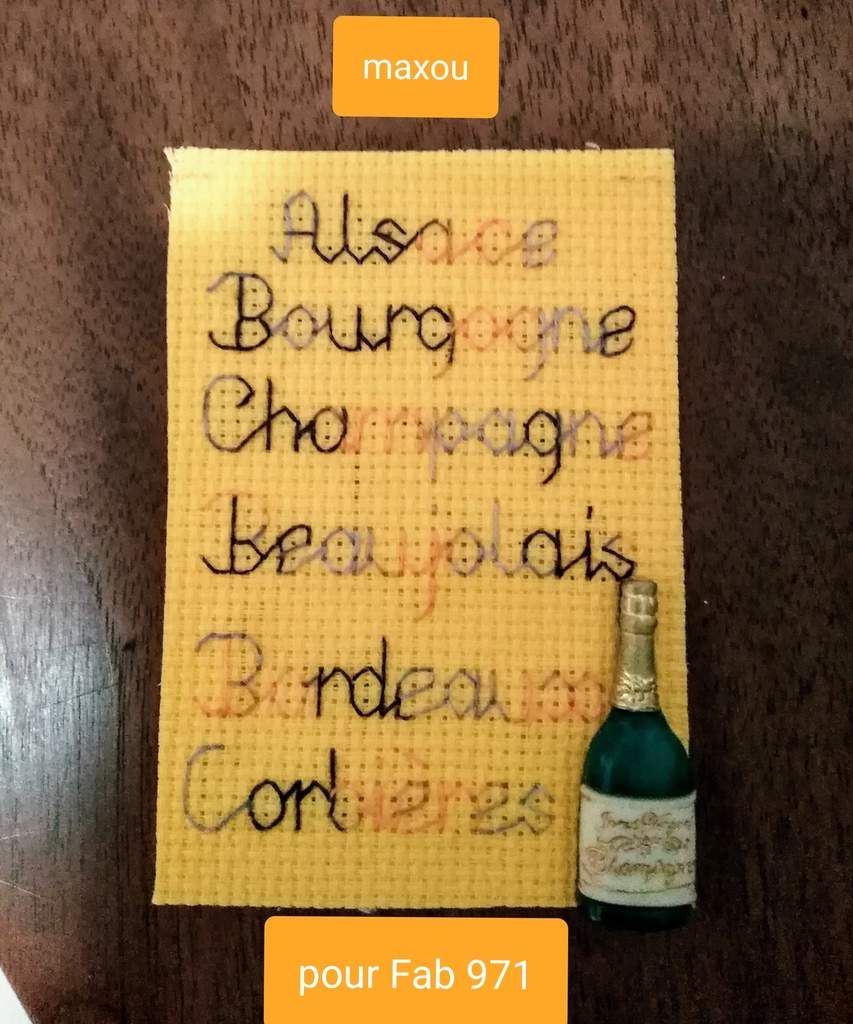 maxou
Alsace
Bourgogne
Champagne
Beaujolais
Bordeaux
Corbières
Champagne
pour Fab 971